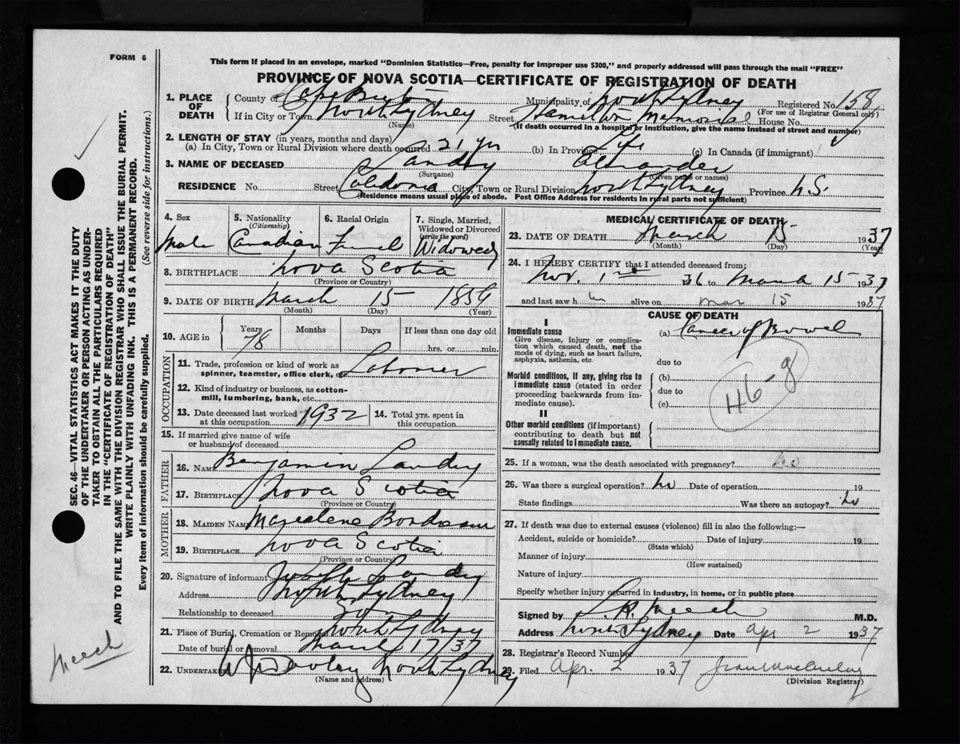 FORM 6
This form if placed in an envelope, marked "Dominion Statistics—Free, penalty for improper use $300," and properly addressed will pass through the mail "FREE"
PROVINCE OF NOVA SCOTIA—CERTIFICATE OF REGISTRATION OF DEATH
1. PLACE OF DEATH
County of Cape Breton Municipality of North Sydney Registered No. 158
(For use of Registrar General only)
If in City or Town North Sydney Street Hamilton Memorial House No.
(Name) (If death occurred in a hospital or institution, give the name instead of street and number)
2. LENGTH OF STAY (in years, months and days)
(a) In City, Town or Rural Division where death occurred 21 yrs (b) In Province Life (c) In Canada (if immigrant)
3. NAME OF DECEASED Landry Alexander
(Surname) (Given name or names)
RESIDENCE No. Street Caledonia City, Town or Rural Division North Sydney Province N.S.
(Residence means usual place of abode. Post Office Address for residents in rural parts not sufficient)
4. Sex Male
5. Nationality (Citizenship) Canadian
6. Racial Origin French
7. Single, Married, Widowed or Divorced (write the word) Widowed
8. BIRTHPLACE Nova Scotia
(Province or Country)
9. DATE OF BIRTH March 15 1859
(Month) (Day) (Year)
10. AGE in Years 78 Months Days If less than one day old
hrs. or min.
OCCUPATION
11. Trade, profession or kind of work as spinner, teamster, office clerk, etc. Laborer
12. Kind of industry or business, as cotton-mill, lumbering, bank, etc.
13. Date deceased last worked at this occupation 1932
14. Total yrs. spent in this occupation
15. If married give name of wife or husband of deceased
FATHER
16. NAME Benjamin Landry
17. BIRTHPLACE Nova Scotia
(Province or Country)
MOTHER
18. MAIDEN NAME Magdelene Boudreau
19. BIRTHPLACE Nova Scotia
(Province or Country)
20. Signature of informant Landry
Address North Sydney
Relationship to deceased Son
21. Place of Burial, Cremation or Removal North Sydney
Date of burial or removal March 17/37
22. UNDERTAKER Dooley North Sydney
(Name and address)
MEDICAL CERTIFICATE OF DEATH
23. DATE OF DEATH March 15 1937
(Month) (Day) (Year)
24. I HEREBY CERTIFY that I attended deceased from:
Nov. 1st 36 to March 15 1937
and last saw him alive on Mar 15 1937
CAUSE OF DEATH
I
Immediate cause
Give disease, injury or complication which caused death, not the mode of dying, such as heart failure, asphyxia, asthenia, etc.
(a) Cancer of Bowel
due to
Morbid conditions, if any, giving rise to immediate cause (stated in order proceeding backwards from immediate cause).
(b)
due to
(c)
46-g
II
Other morbid conditions (if important) contributing to death but not causally related to immediate cause.
25. If a woman, was the death associated with pregnancy? no
26. Was there a surgical operation? no Date of operation 19
State findings Was there an autopsy? no
27. If death was due to external causes (violence) fill in also the following:—
Accident, suicide or homicide? Date of injury 19
(State which)
Manner of injury
(How sustained)
Nature of injury
Specify whether injury occurred in industry, in home, or in public place
Signed by Meech M.D.
Address North Sydney Date Apr 2 1937
28. Registrar's Record Number
29. Filed Apr. 2 1937
(Division Registrar)
SEC. 46—VITAL STATISTICS ACT MAKES IT THE DUTY OF THE UNDERTAKER OR PERSON ACTING AS UNDERTAKER TO OBTAIN ALL THE PARTICULARS REQUIRED IN THE "CERTIFICATE OF REGISTRATION OF DEATH" AND TO FILE THE SAME WITH THE DIVISION REGISTRAR WHO SHALL ISSUE THE BURIAL PERMIT.
WRITE PLAINLY WITH UNFADING INK. THIS IS A PERMANENT RECORD.
Every item of information should be carefully supplied. (See reverse side for instructions.)
Meech